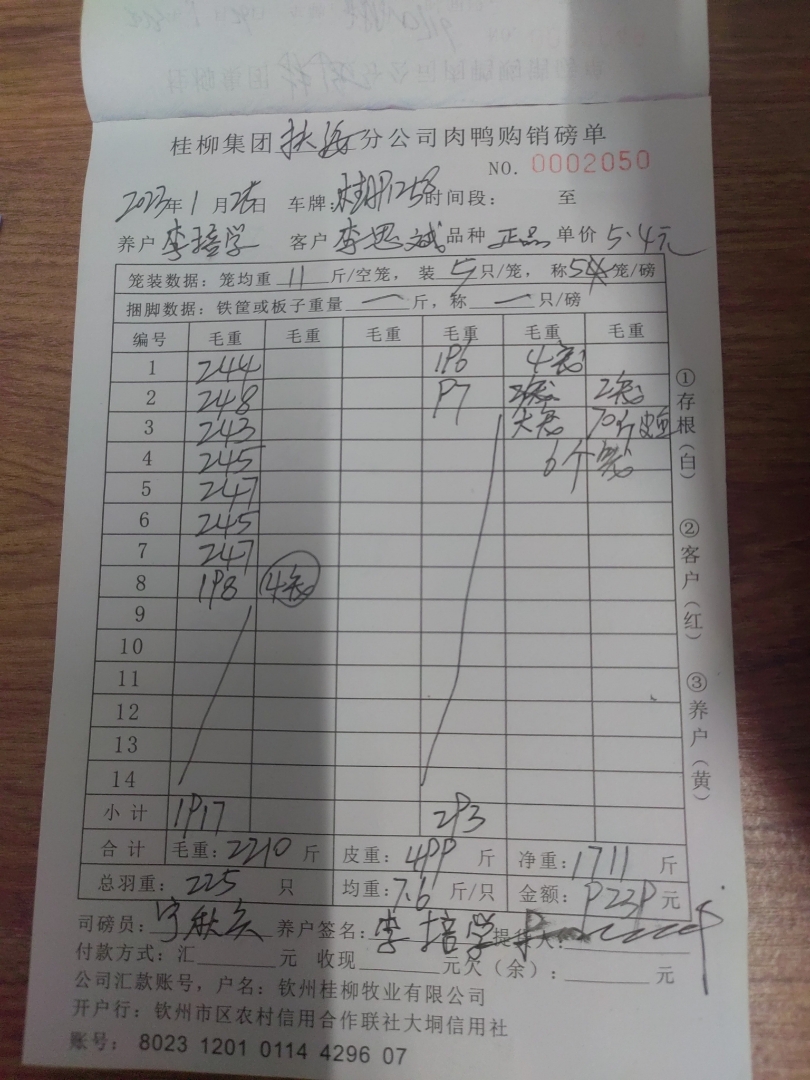 桂柳集团扶海分公司肉鸭购销磅单
NO. 0002050
2023年1月 日 车牌: 1258时间段: 至
养户 李培学 客户 李思诚 品种 正品 单价 5.4元
笼装数据: 笼均重 11 斤/空笼, 装 5 只/笼, 称 5 笼/磅
捆脚数据: 铁筐或板子重量 一 斤, 称 一 只/磅
编号 毛重 毛重 毛重 毛重 毛重 毛重
1 244 196 4笼
2 248 97 2笼
3 243 大笼 70斤
4 245 6个笼
5 247
6 245
7 247
8 198 4笼
9
10
11
12
13
14
小计 1917 293
合计 毛重: 2210 斤 皮重: 499 斤 净重: 1711 斤
总羽重: 225 只 均重: 7.6 斤/只 金额: 9239 元
司磅员: 养户签名: 李培学 提货人:
付款方式: 汇 元 收现 元欠(余): 元
公司汇款账号, 户名: 钦州桂柳牧业有限公司
开户行: 钦州市区农村信用合作联社大垌信用社
账号: 8023 1201 0114 4296 07
①存根(白)
②客户(红)
③养户(黄)